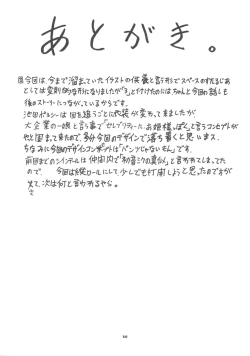 あとがき。
今回は、今まで溜まっていたイラストの供養と言う形でスペースのすてるじあ
としては変則的な形になりましたが「3」と付けたのにはちゃんと今回の話しも
後のストーリーにつながっているからです。
池田ポルシーは回を追うごとに衣装が変わって来ましたが
大企業の一娘と言う事で「セレブリティーに、お姫様っぽく」と言うコンセプトが
やっと固まって来たので、多分今回のデザインで落ち着くと思います。
ちなみに今回のデザインコンセプトは「パンツじゃないもん」です。
前回までのシンプルは仲間内で「初音ミクの真似」と言われてしまってた
ので、今回は縦ロールにして少しでも打開しようと思ったのですが
さて、次は何と言われるやら。